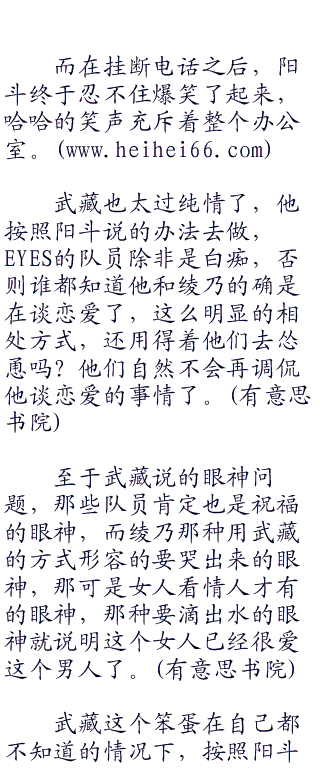 而在挂断电话之后，阳
斗终于忍不住爆笑了起来，
哈哈的笑声充斥着整个办公
室。(www.heihei66.com)
武藏也太过纯情了，他
按照阳斗说的办法去做，
EYES的队员除非是白痴，否
则谁都知道他和绫乃的确是
在谈恋爱了，这么明显的相
处方式，还用得着他们去怂
恿吗？他们自然不会再调侃
他谈恋爱的事情了。(有意思
书院)
至于武藏说的眼神问
题，那些队员肯定也是祝福
的眼神，而绫乃那种用武藏
的方式形容的要哭出来的眼
神，那可是女人看情人才有
的眼神，那种要滴出水的眼
神就说明这个女人已经很爱
这个男人了。(有意思书院)
武藏这个笨蛋在自己都
不知道的情况下，按照阳斗